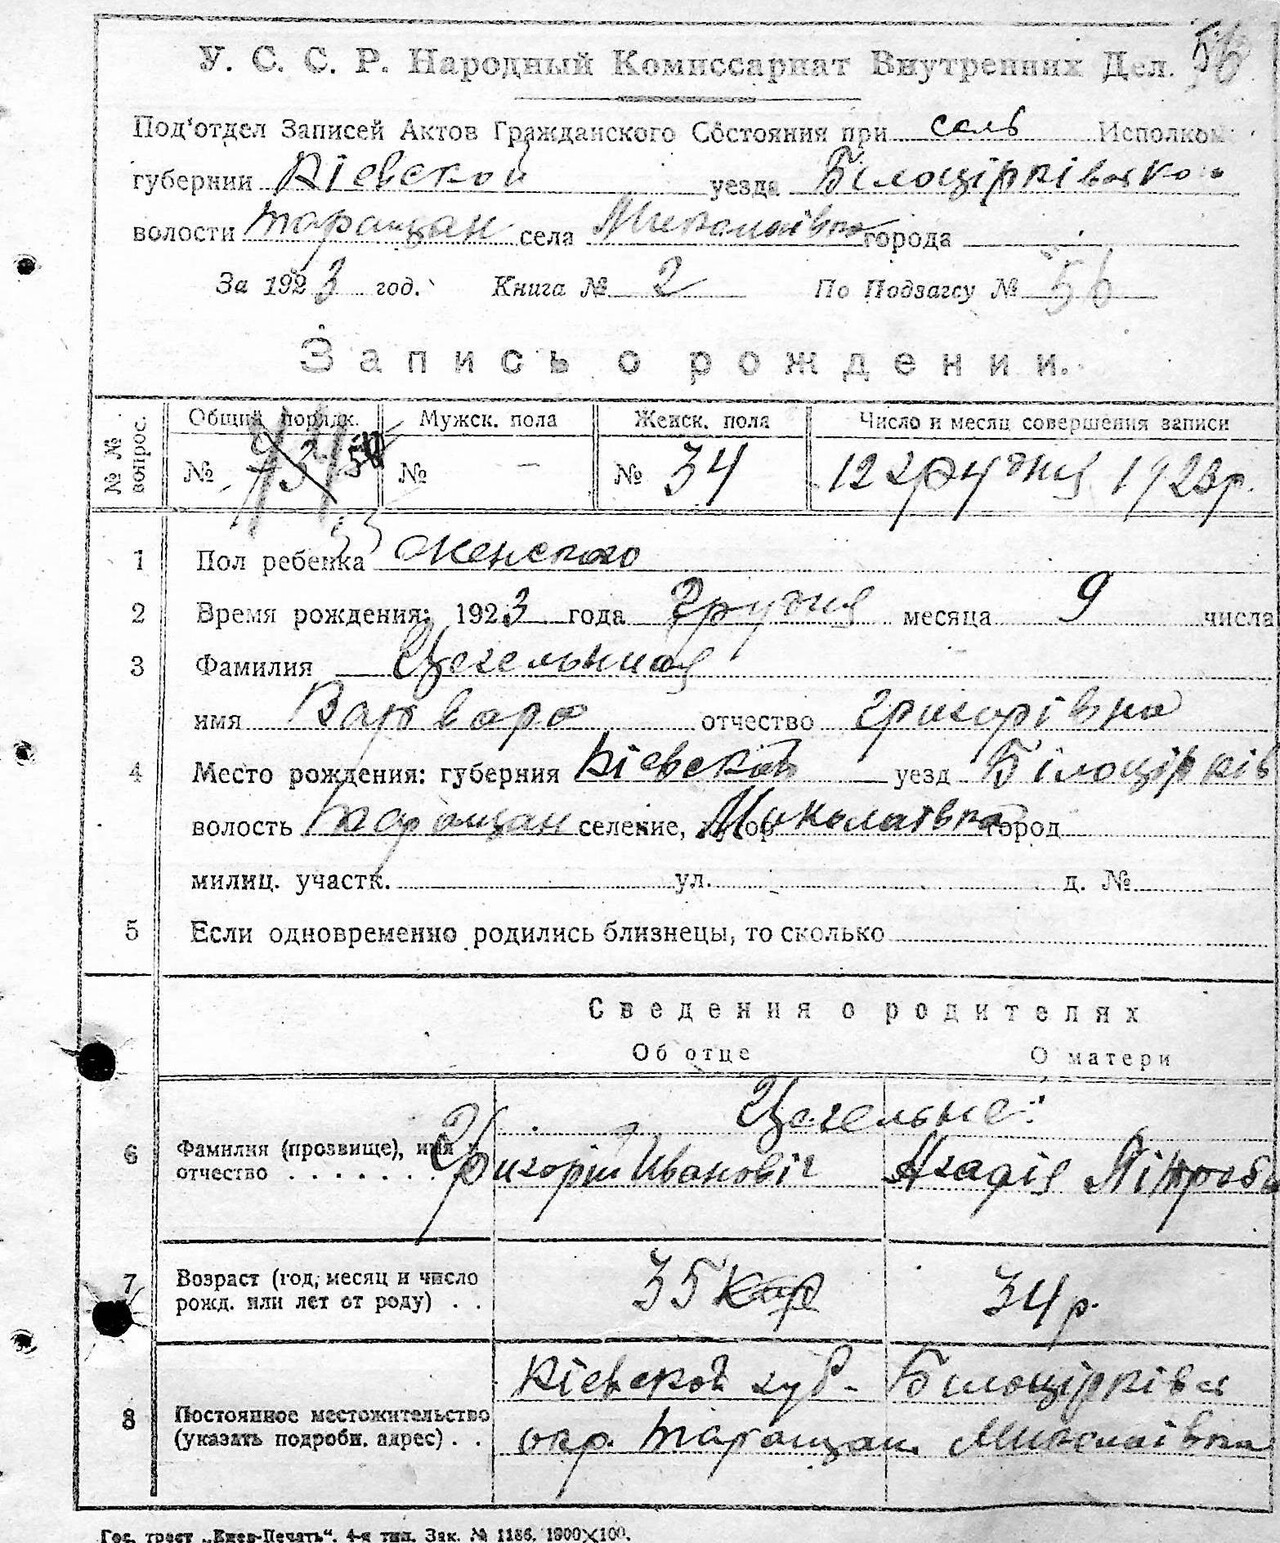 У. С. С. Р. Народный Комиссариат Внутренних Дел. 56
Под'отдел Записей Актов Гражданского Состояния при сель Исполком
губернии Кіевской уезда Білоцірківской
волости Таращан села Миколаівка города
За 1923 год. Книга № 2 По Подзагсу № 56
Запись о рождении.
№ № вопрос.
Общий порядк. Мужск. пола Женск. пола Число и месяц совершения записи
№ № — № 34 12 грудня 1923 р.
1 Пол ребенка женского
2 Время рождения: 1923 года Грудня месяца 9 числа
3 Фамилия Цегельная
имя Варвара отчество Григорівна
4 Место рождения: губерния Кіевской уезд Білоцірків
волость Таращан селение, хутор Миколаівка город
милиц. участк. ул. д. №
5 Если одновременно родились близнецы, то сколько
Сведения о родителях
Об отце О матери
Цегельне
6 Фамилия (прозвище), имя и Григорій Ивановіч Агафія Пітров
отчество
7 Возраст (год, месяц и число 35 34 р.
рожд. или лет от роду) . .
Кіевской губ. Білоцірків
8 Постоянное местожительство
(указать подробн. адрес) . . окр. Таращан. Миколаівка
Гос. трест „Киев-Печать“. 4-я тип. Зак. № 1186. 1900×100.